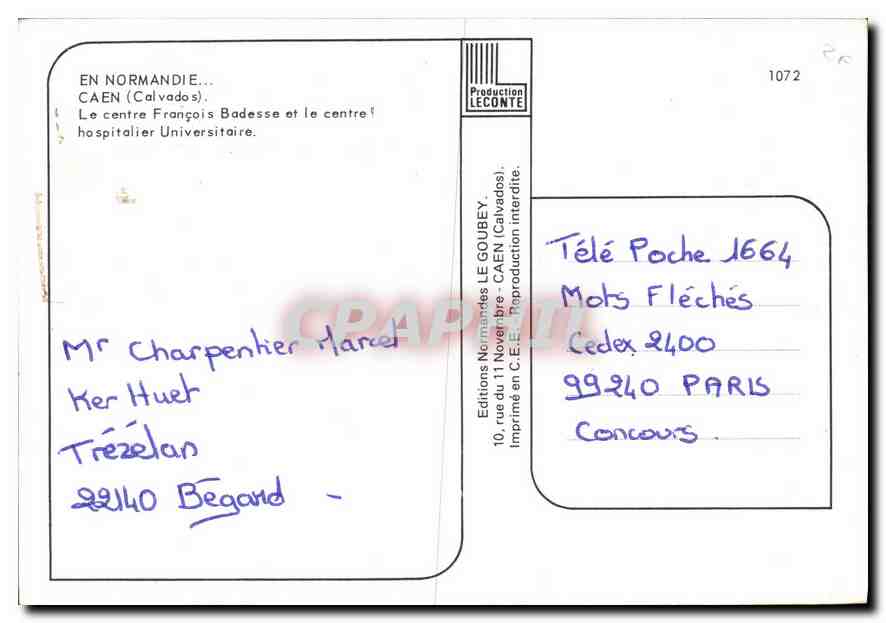 EN NORMANDIE...
CAEN (Calvados).
Le centre François Badesse et le centre
hospitalier Universitaire.
Mr Charpentier Marcel
Ker Huet
Trézélan
22140 Bégard -
Production
LECONTE
Editions Normandes LE GOUBEY.
10, rue du 11 Novembre - CAEN (Calvados).
Imprimé en C.E.E. - Reproduction interdite.
1072
Télé Poche 1664
Mots Fléchés
Cedex 2400
99240 PARIS
Concours.
CPAPHIL